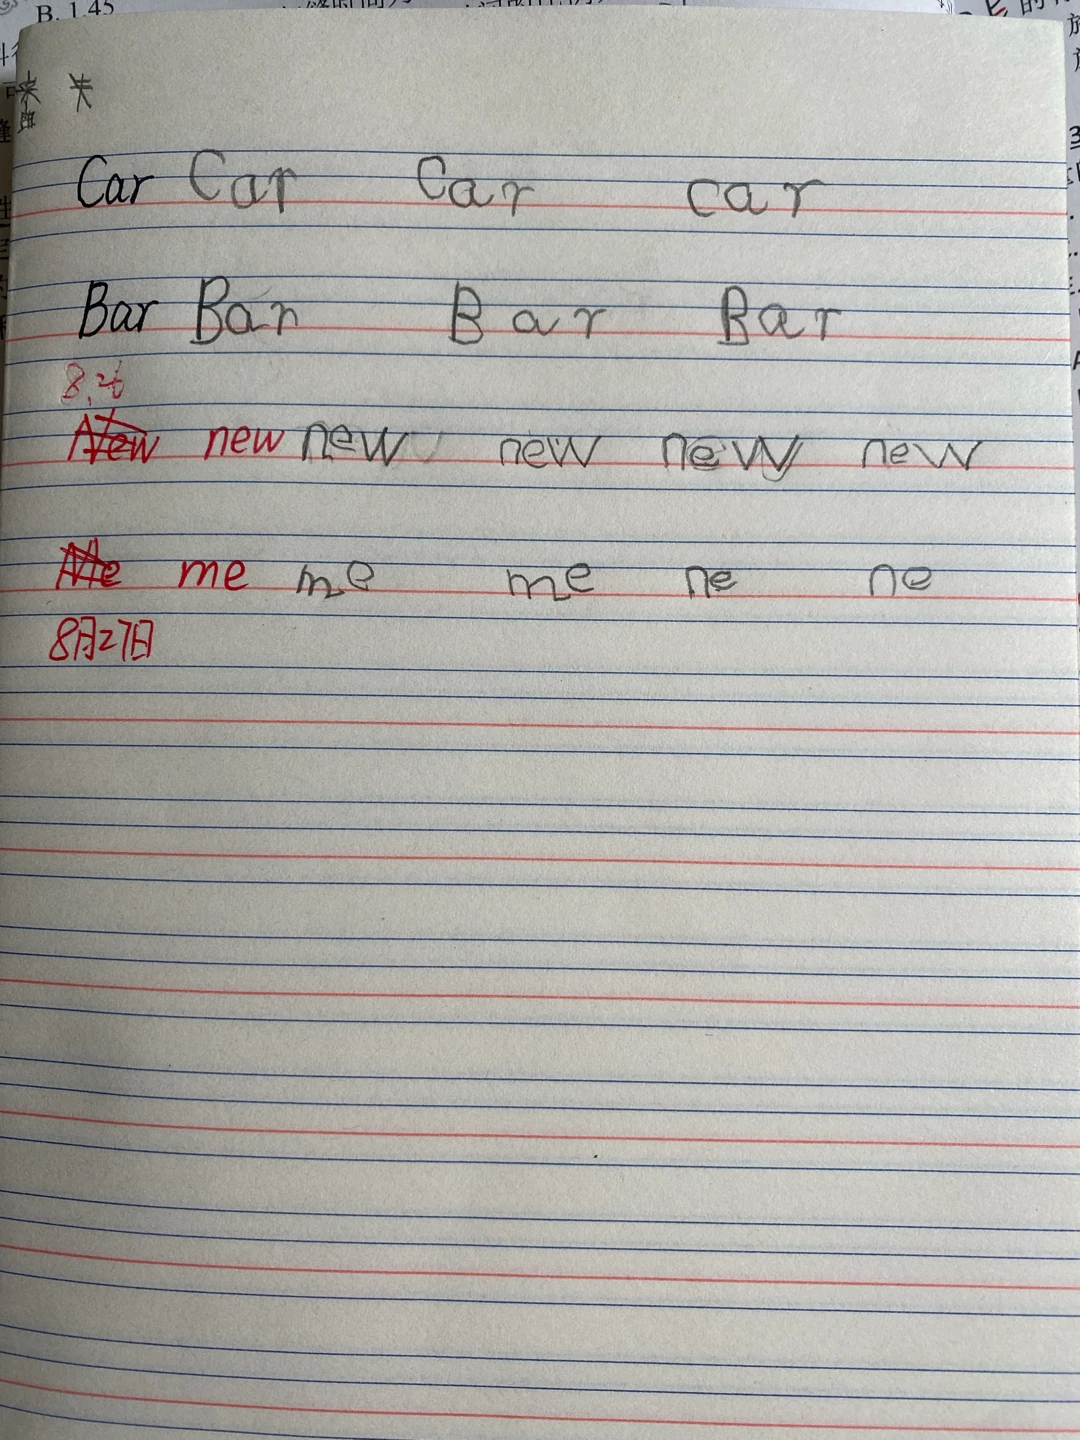 B. 1.45
Car Car Car car
Bar Bar Bar Bar
8.26
New new new new new new
Me me me me ne ne
8月27日